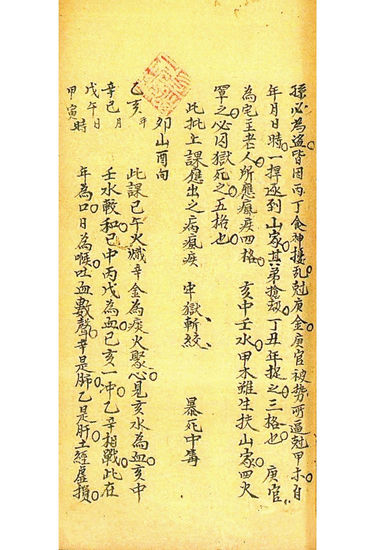 孫必為盜皆因丙丁食神撓乱尅庚金庚官被势所逼尅甲木自
年月日時一捍逐到山家其弟搶刼丁丑年捉之三格也 庚官
為宅主老人所應癲疾四格 亥中壬水甲木雖生扶山家四火
罩之必囚獄死之五格也
此批上課應出之病瘋疾 牢獄斬絞 暴死中毒
卯山酉向
乙亥年
辛巳月
戊午日
甲寅時
此課巳午火濺辛金為痰火聚心見亥水為血亥中
壬水較和巳中丙戊為血巳亥一冲乙辛相戰此在
年為口日為喉吐血數聲辛是肺乙是肝土經虛損